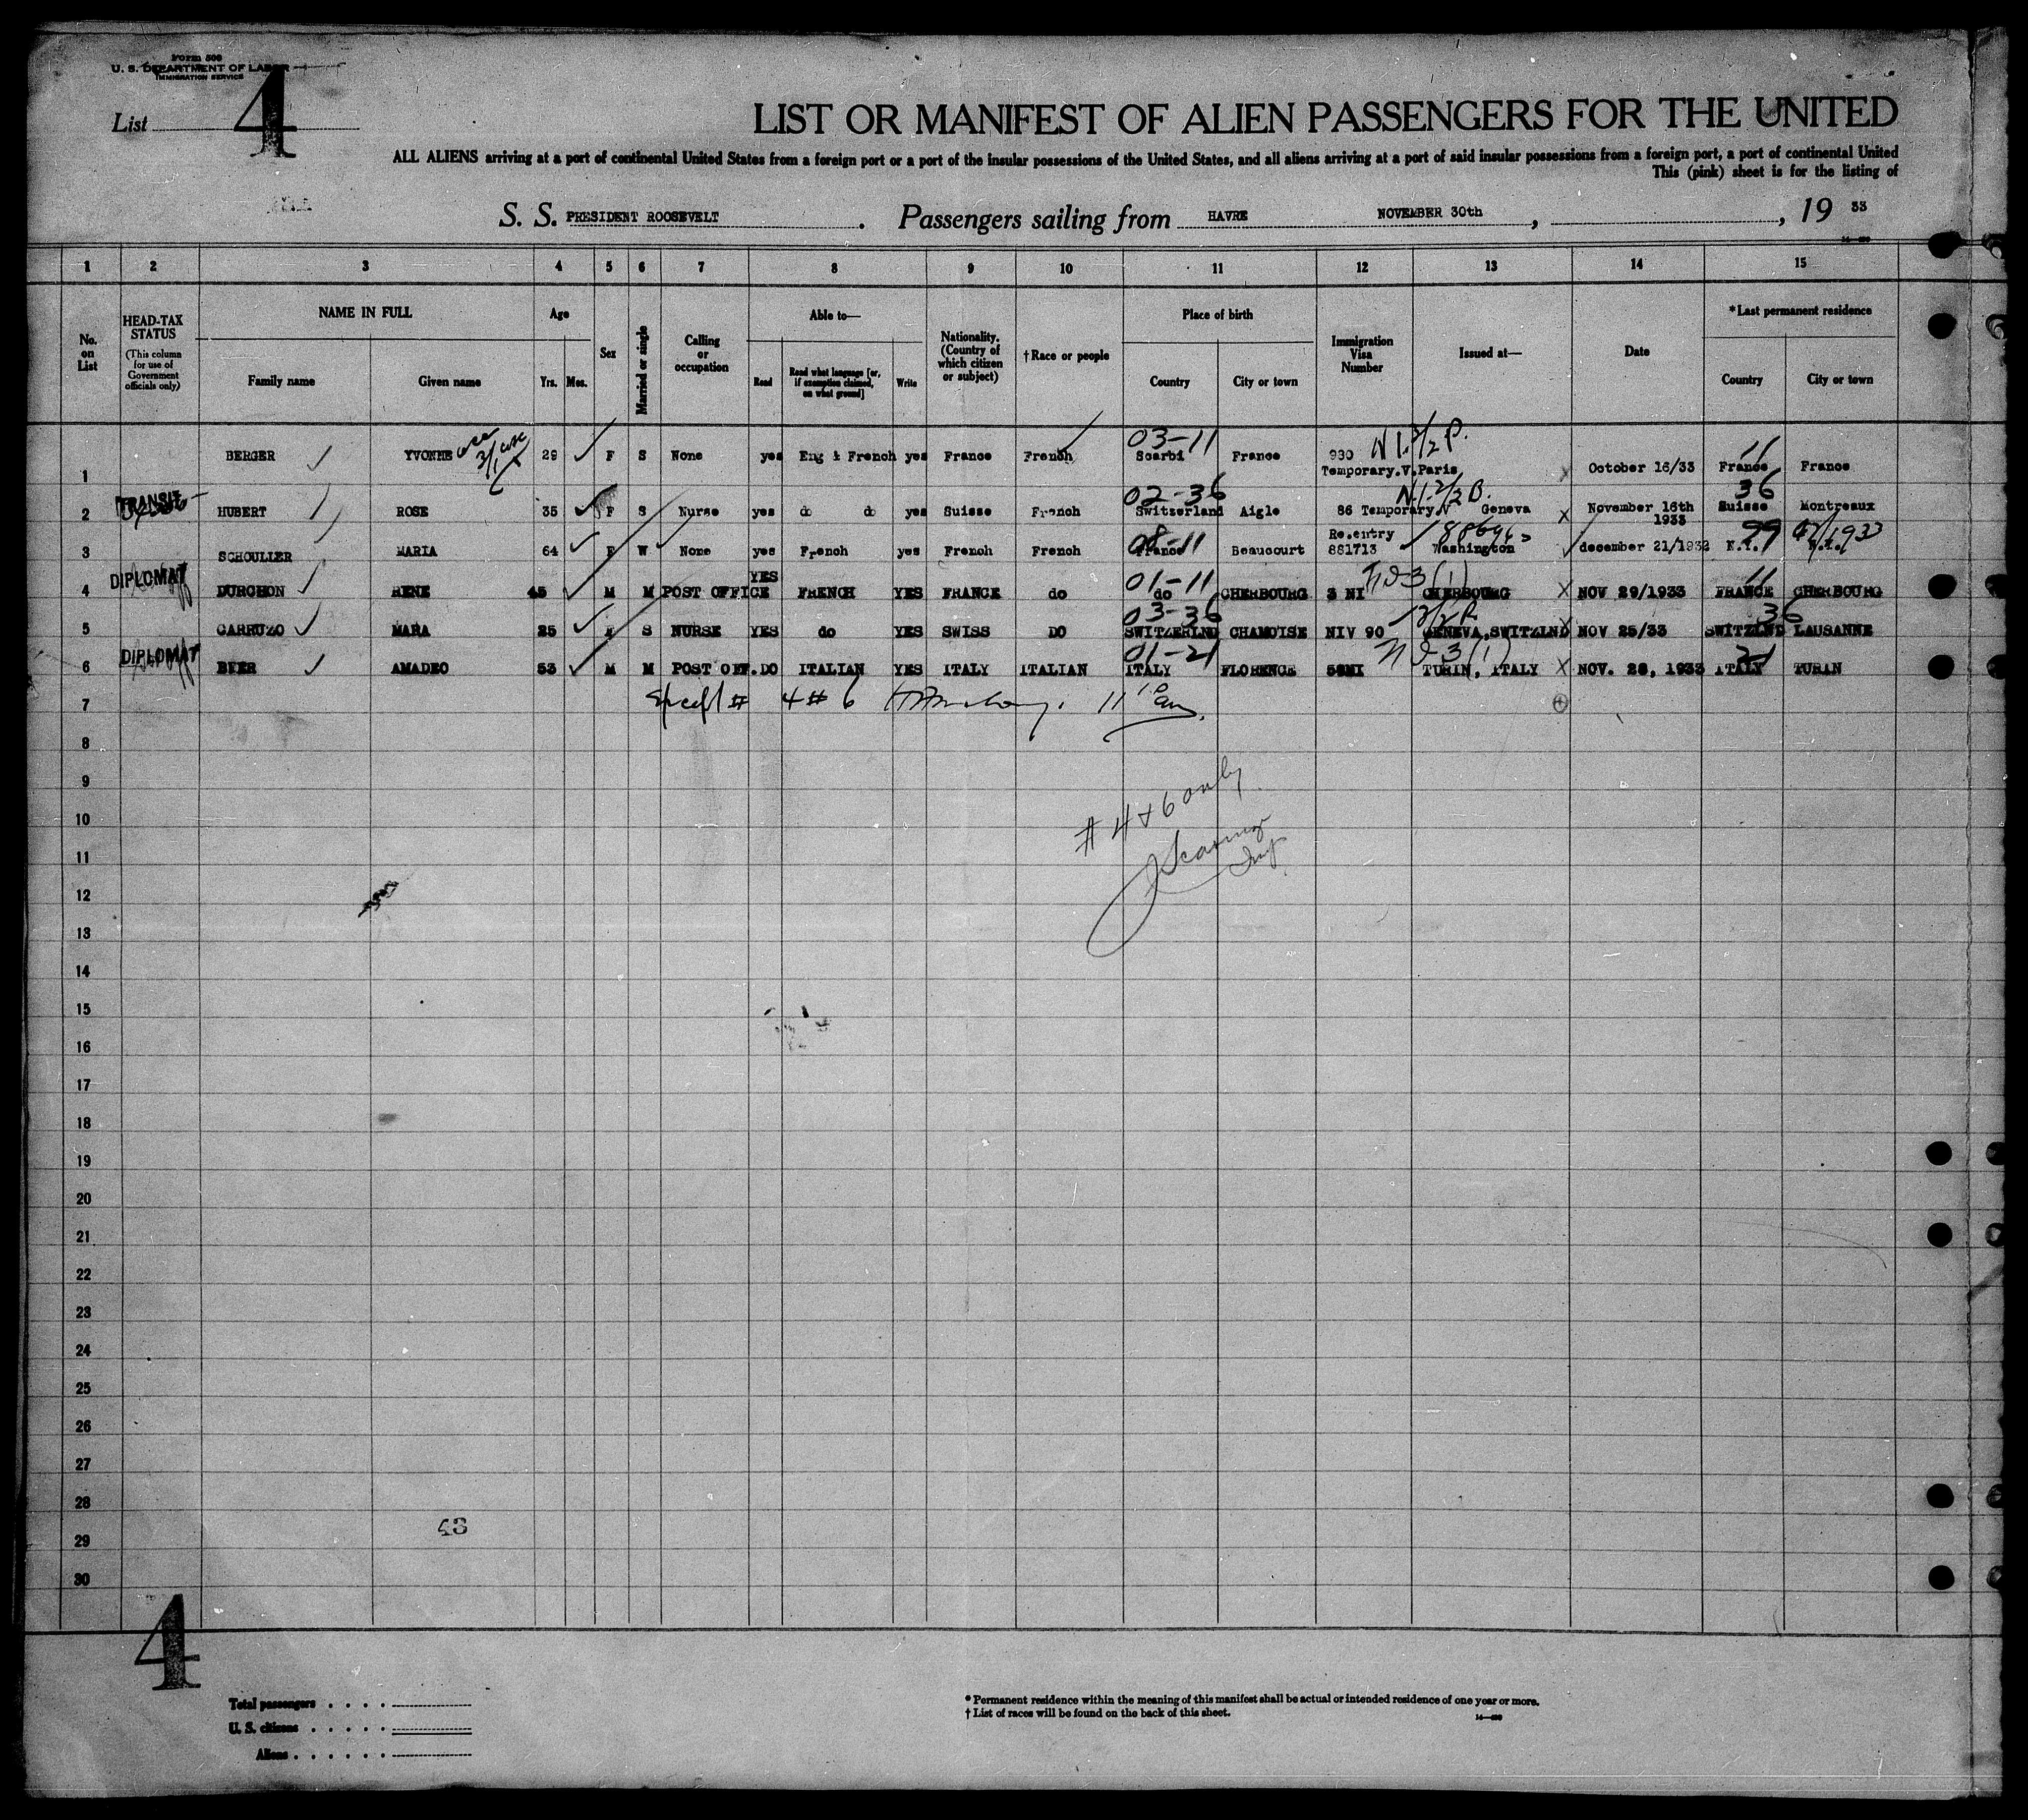 Form 500
U. S. DEPARTMENT OF LABOR
IMMIGRATION SERVICE
List 4
LIST OR MANIFEST OF ALIEN PASSENGERS FOR THE UNITED
ALL ALIENS arriving at a port of continental United States from a foreign port or a port of the insular possessions of the United States, and all aliens arriving at a port of said insular possessions from a foreign port, a port of continental United
This (pink) sheet is for the listing of
S. S. PRESIDENT ROOSEVELT . Passengers sailing from HAVRE NOVEMBER 30th , , 19 33
1 2 3 4 5 6 7 8 9 10 11 12 13 14 15
No. on List
HEAD-TAX STATUS (This column for use of Government officials only)
NAME IN FULL
Family name Given name
Age
Yrs. Mos.
Sex
Married or single
Calling or occupation
Able to—
Read Read what language [or, if exemption claimed, on what ground] Write
Nationality. (Country of which citizen or subject)
†Race or people
Place of birth
Country City or town
Immigration Visa Number
Issued at—
Date
*Last permanent residence
Country City or town
03-11 11
1 BERGER YVONNE 29 F S None yes Eng & French yes France French Scarbi France 930 Temporary.V.Paris October 16/33 France France
02-36 36
2 TRANSIT HUBERT ROSE 35 F S Nurse yes do do yes Suisse French Switzerland Aigle 86 Temporary.V Geneva November 16th 1933 Suisse Montreaux
08-11 99
3 SCHOULLER MARIA 64 F W None yes French yes French French France Beaucourt Re.entry 881713 Washington december 21/1932 N.Y. N.Y.
01-11 11
4 DIPLOMAT DURCHON RENE 45 M M POST OFFICE YES FRENCH YES FRANCE do do CHERBOURG 3 NI CHERBOURG NOV 29/1933 FRANCE CHERBOURG
03-36 36
5 CARRUZO MARA 25 F S NURSE YES do YES SWISS DO SWITZERLND CHAMOISE NIV 90 GENEVA,SWITZLND NOV 25/33 SWITZLND LAUSANNE
01-21 21
6 DIPLOMAT BYER AMADEO 53 M M POST OFF. DO ITALIAN YES ITALY ITALIAN ITALY FLORENCE 58NI TURIN, ITALY NOV. 28, 1933 ITALY TURIN
7 4 # 6
8
9
# 4 + 6 only
10
11
12
13
14
15
16
17
18
19
20
21
22
23
24
25
26
27
28
43
29
30
4
Total passengers
U. S. citizens
Aliens
* Permanent residence within the meaning of this manifest shall be actual or intended residence of one year or more.
† List of races will be found on the back of this sheet.